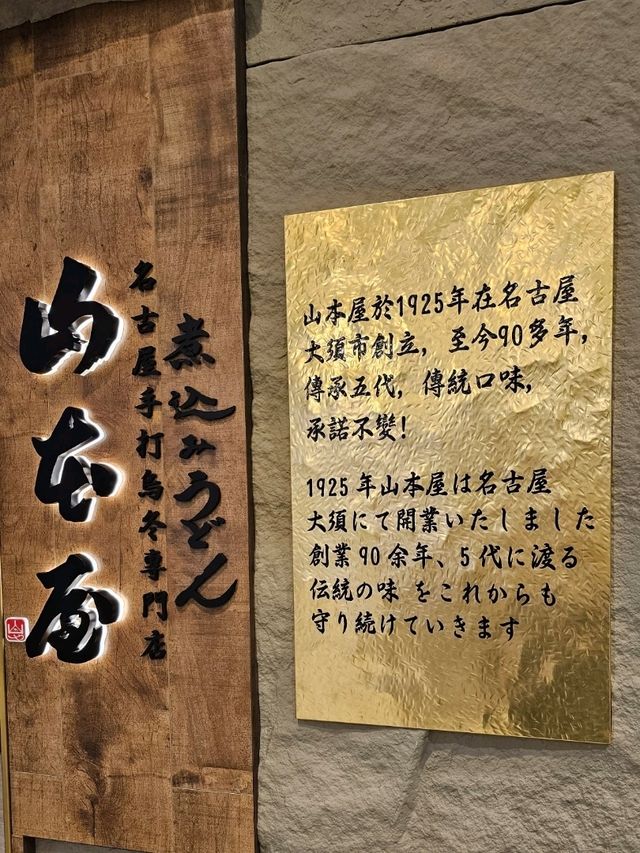 山本屋
名古屋手打烏冬專門店
煮込みうどん
山本屋於1925年在名古屋
大須市創立，至今90多年，
傳承五代，傳統口味，
承諾不變！
1925年山本屋は名古屋
大須にて開業いたしました
創業90余年、5代に渡る
伝統の味 をこれからも
守り続けていきます